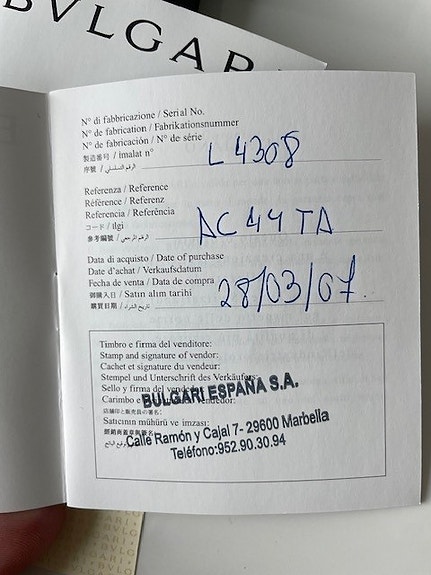 BVLGARI
N° di fabbricazione / Serial No.
N° de fabrication / Fabrikationsnummer
N° de fabricación / N° de série
製造番号 / imalat n°
序號 / الرقم التسلسلي
L 4308
Referenza / Reference
Référence / Referenz
Referencia / Referência
コード / ilgi
參考編號 / الرقم المرجعي
AC 44 TA
Data di acquisto / Date of purchase
Date d'achat / Verkaufsdatum
Fecha de venta / Data de compra
御購入日 / Satın alım tarihi
購買日期 / تاريخ الشراء
28/03/07.
Timbro e firma del venditore:
Stamp and signature of vendor:
Cachet et signature du vendeur:
Stempel und Unterschrift des Verkäufers:
Sello y firma del vendedor:
Carimbo e vendedor:
店舗印と販売員の署名:
Satıcının mühürü ve imzası:
BULGARI ESPAÑA S.A.
Calle Ramón y Cajal 7- 29600 Marbella
Teléfono:952.90.30.94
BVLGARI